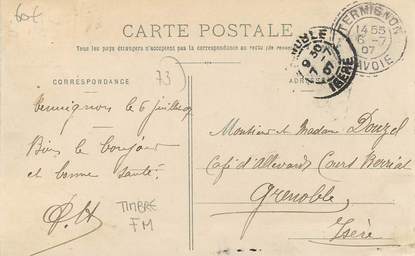 60€
CARTE POSTALE
Tous les pays étrangers n'acceptent pas la correspondance au recto (se renseigner
CORRESPONDANCE
73
ADRESSE
GRENOBLE
9 30
7-7
07
ISÈRE
TERMIGNON
14 55
6-7
07
SAVOIE
Termignon le 6 juillet 07
Bien le bonjour
et bonne santé
P.H
TIMBRE
FM
Monsieur et Madame Douzel
Café d'Allevard Cours Berriat
Grenoble
Isère